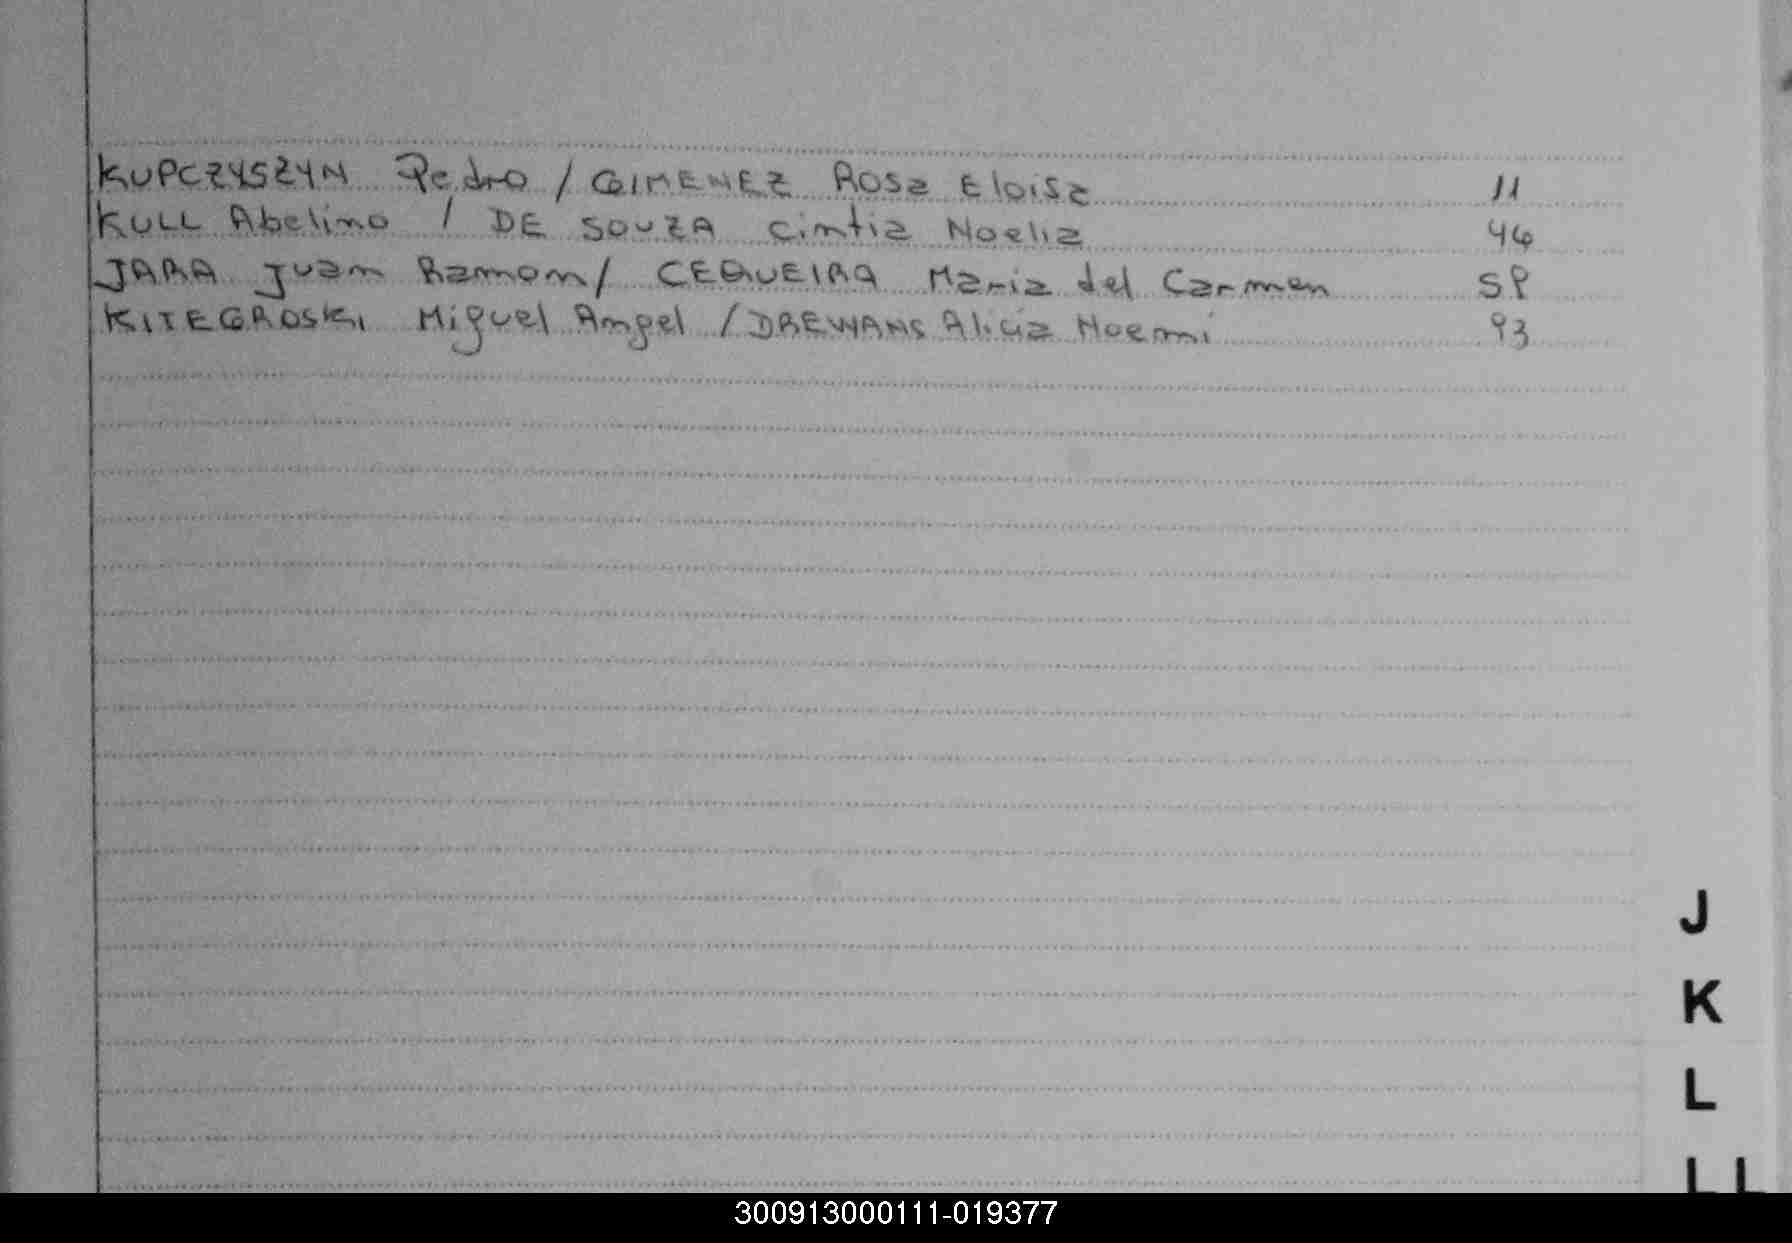 KUPCZYSZYN Pedro / GIMENEZ Rosa Eloisa 11
KULL Abelino / DE SOUZA Cintia Noelia 46
JARA Juan Ramon / CEQUEIRA Maria del Carmen
KITEGROSKI Miguel Angel / DREWANS Alicia Noemi 93
J
K
L
LL
300913000111-019377